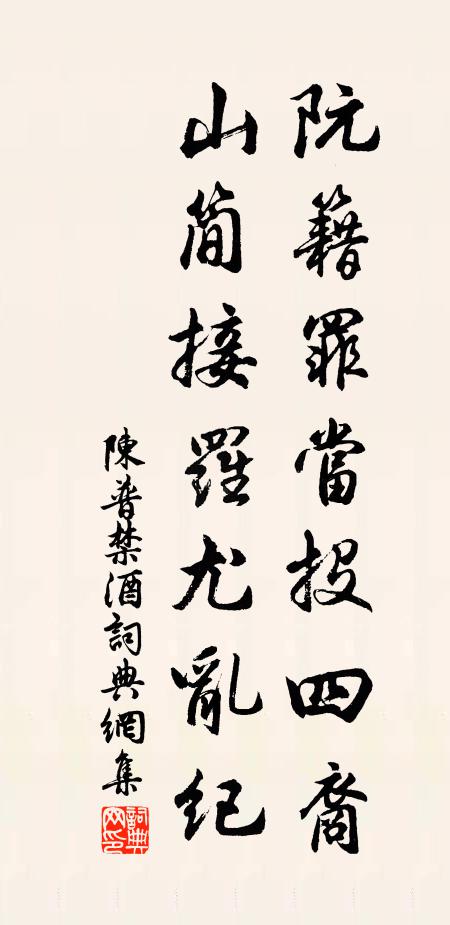 阮籍罪當投四裔
山簡接羅尤亂紀
陳普禁酒詞典網集
詞典網印